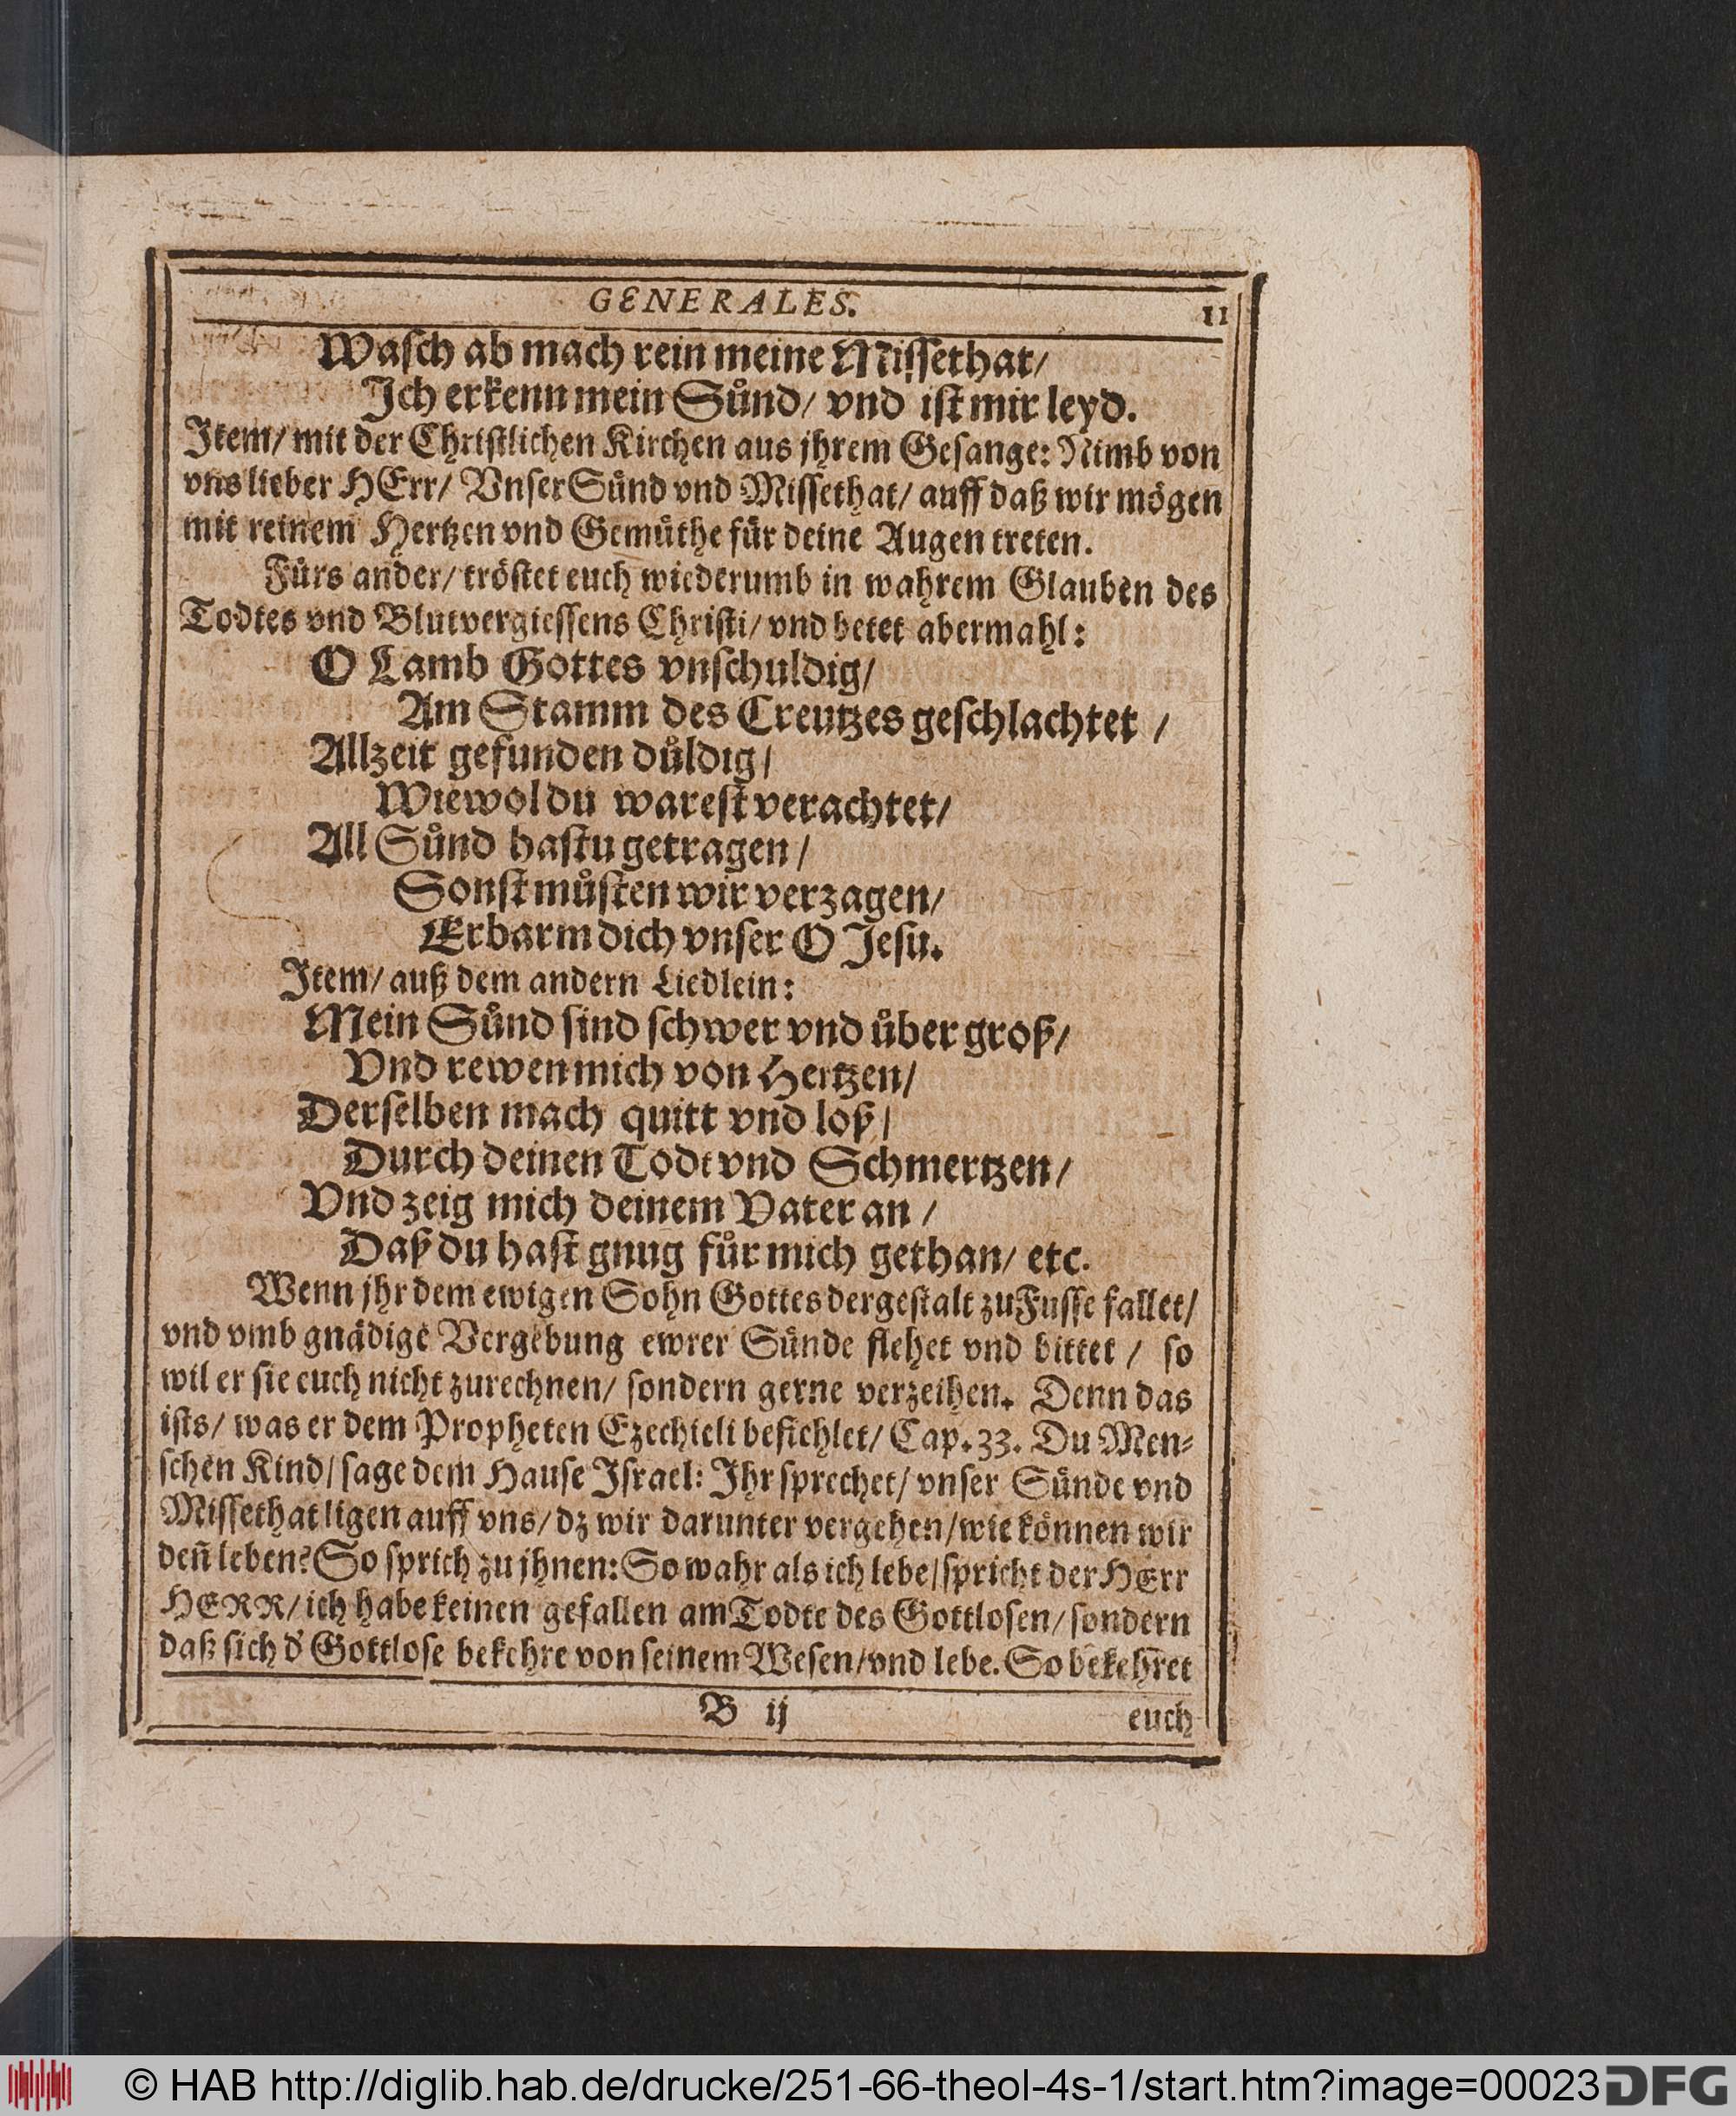 GENERALES. 11
Wasch ab mach rein meine Missethat/
Ich erkenn mein Sůnd/ vnd ist mir leyd.
Item/ mit der Christlichen Kirchen aus jhrem Gesange: Nimb von
vns lieber HErr/ Vnser Sůnd vnd Missethat/ auff daß wir mögen
mit reinem Hertzen vnd Gemůthe fůr deine Augen treten.
Fůrs ander/ tröstet euch wiederumb in wahrem Glauben des
Todtes vnd Blutvergiessens Christi/ vnd betet abermahl:
O Lamb Gottes vnschuldig/
Am Stamm des Creutzes geschlachtet /
Allzeit gefunden důldig/
Wiewol du warest verachtet/
All Sůnd hastu getragen/
Sonst můsten wir verzagen/
Erbarm dich vnser O Jesu.
Item/ auß dem andern Liedlein:
Mein Sůnd sind schwer vnd ůber groß/
Vnd rewen mich von Hertzen/
Derselben mach quitt vnd loß/
Durch deinen Todt vnd Schmertzen/
Vnd zeig mich deinem Vater an /
Daß du hast gnug fůr mich gethan/ etc.
Wenn jhr dem ewigen Sohn Gottes dergestalt zu Fusse fallet/
vnd vmb gnädige Vergebung ewrer Sůnde flehet vnd bittet / so
wil er sie euch nicht zurechnen/ sondern gerne verzeihen. Denn das
ists/ was er dem Propheten Ezechieli befiehlet/ Cap. 33. Du Men⸗
schen Kind/ sage dem Hause Israel: Ihr sprechet/ vnser Sůnde vnd
Missethat ligen auff vns/ dz wir darunter vergehen/ wie können wir
deñ leben? So sprich zu jhnen: So wahr als ich lebe/ spricht der HErr
HERR/ ich habe keinen gefallen am Todte des Gottlosen/ sondern
daß sich d' Gottlose bekehre von seinem Wesen/ vnd lebe. So bekehret
B ij euch
© HAB http://diglib.hab.de/drucke/251-66-theol-4s-1/start.htm?image=00023 DFG